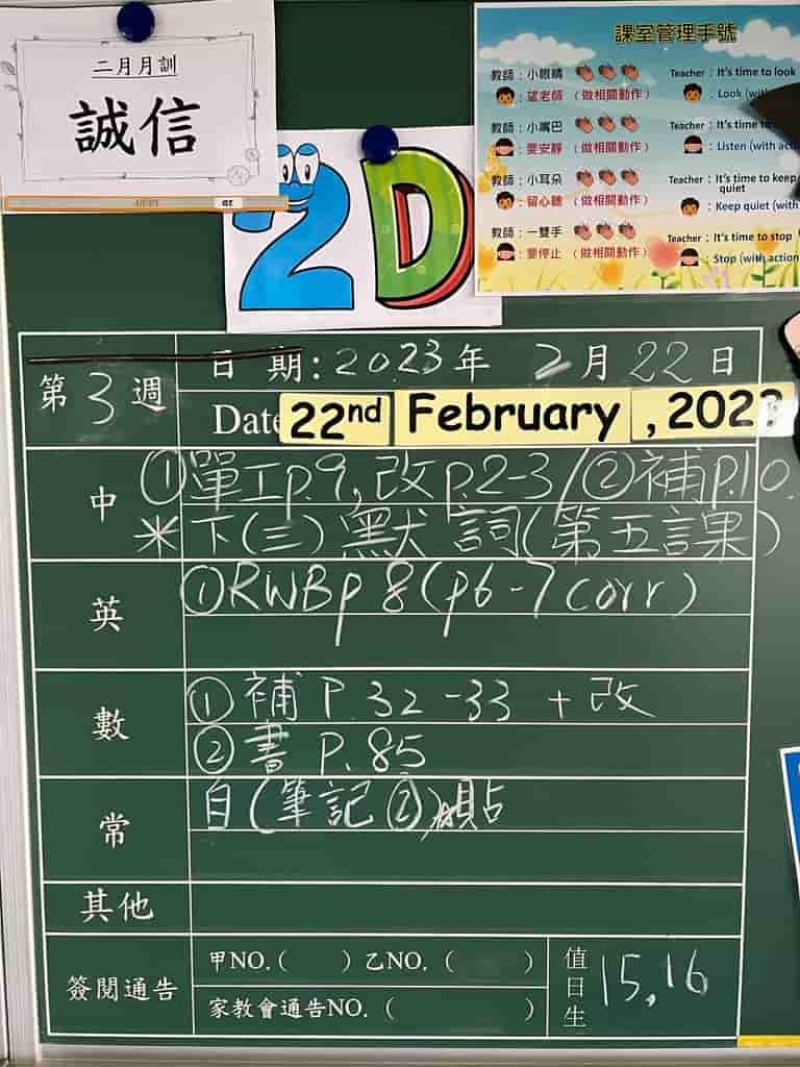 二月月訓
誠信
2D
課室管理手號
教師：小眼睛
Teacher：It's time to look
：望老師 （做相關動作）
：Look (wi
教師：小嘴巴
Teacher：It's time
：要安靜 （做相關動作）
：Listen (with act
教師：小耳朵
Teacher：It's time to keep
quiet
：留心聽 （做相關動作）
：Keep quiet (with
教師：一雙手
Teacher：It's time to stop
：要停止 （做相關動作）
：Stop (with action
第3週
日 期：2023年 2月22日
Date
22nd February , 202
中
①單工p.9,改p.2-3/②補p.10.
*下(三)默詞(第五言果)
英
①RWBp 8(p6-7corr)
數
①補 P.32-33 + 改
②書 P.85
常
自(筆記②)
貼
其他
簽閱通告
甲NO.( ) 乙NO. ( )
家教會通告NO. ( )
值日生
15,16